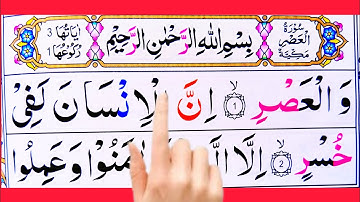 سُورَةُ الْعَصْرِ مَكِّيَّةٌ
بِسْمِ اللهِ الرَّحْمٰنِ الرَّحِيْمِ
اٰيَاتُهَا 3
رُكُوْعُهَا 1
وَ الْعَصْرِ ۙ 1 اِنَّ الْاِنْسَانَ لَفِىْ
خُسْرٍ ۙ 2 اِلَّا الَّ مَنُوْا وَ عَمِلُوا